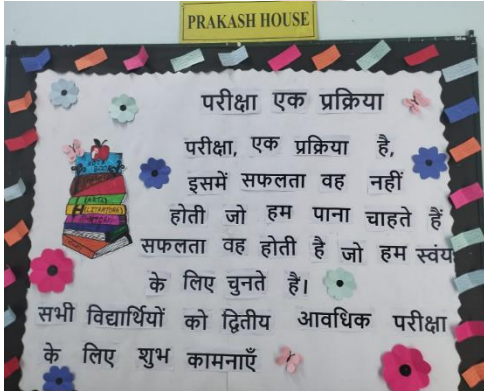 PRAKASH HOUSE
परीक्षा एक प्रक्रिया
परीक्षा, एक प्रक्रिया है,
इसमें सफलता वह नहीं
होती जो हम पाना चाहते हैं
सफलता वह होती है जो हम स्वंय
के लिए चुनते है।
सभी विद्यार्थियों को द्वितीय आवधिक परीक्षा
के लिए शुभ कामनाएँ